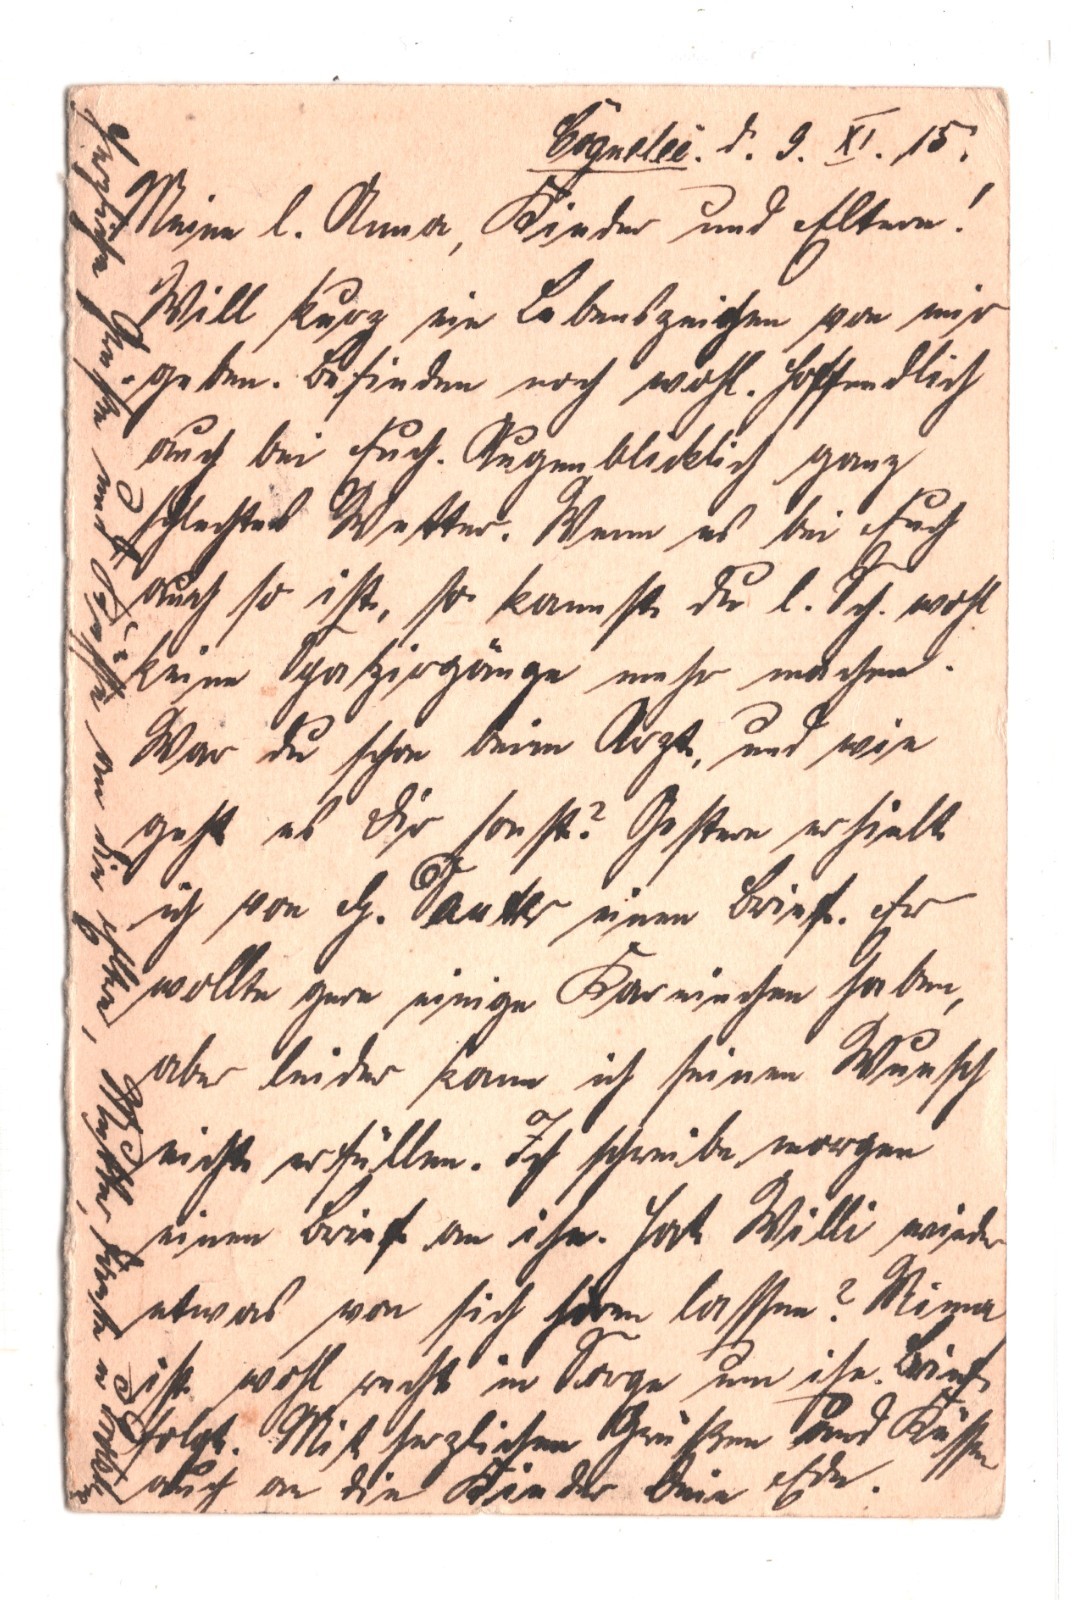 Cognelee. d. 9. XI. 15.
Meine l. Anna, Kinder und Eltern!
Will kurz ein Lebenszeichen von mir
geben. Befinden noch wohl. Hoffendlich
auch bei Euch. Augenblicklich ganz
schlechtes Wetter. Wenn es bei Euch
auch so ist, so kannst du l. Sch. wohl
keine Spazirgänge mehr machen.
War du schon beim Arzt, und wie
geht es Dir sonst? Gestern erhielt
ich von H. einen Brief. Er
wollte gern einige Karninchen haben,
aber leider kann ich seinen Wunsch
nicht erfüllen. Ich schreibe morgen
einen Brief an ihn. Hat Willi wieder
etwas von sich hören lassen? Minna
ist wohl recht in Sorge um ihn. Brief
folgt. Mit herzlichen Grüßen und Küssen
auch an die Kinder Dein Ede.
Herzliche Grüße und Küsse an die Eltern,